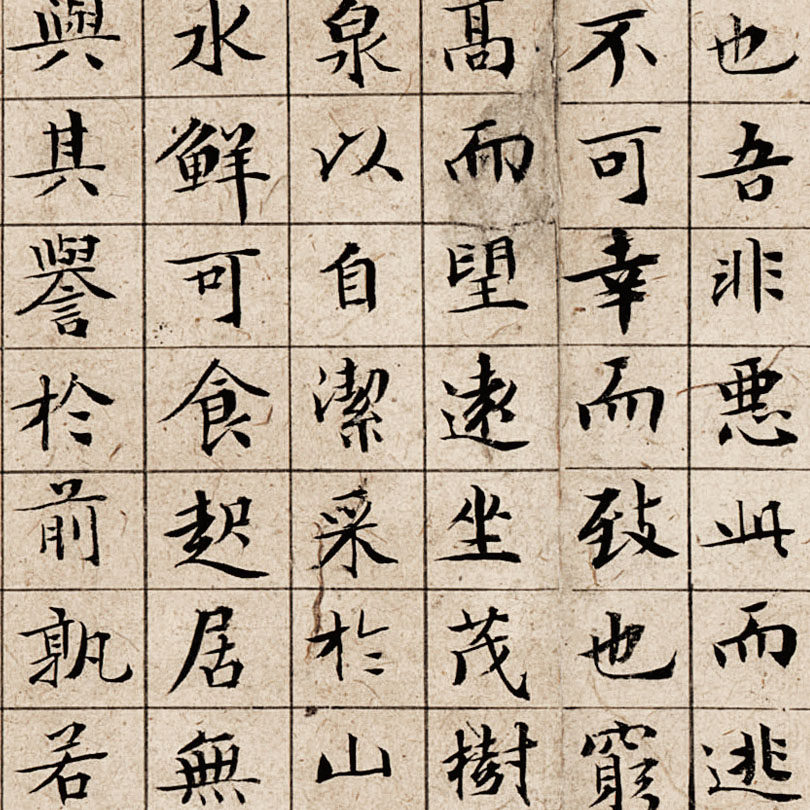 也吾非悪此而逃
不可幸而致也窮
髙而望遠坐茂樹
泉以自潔采於山
水鮮可食起居無
與其譽於前孰若